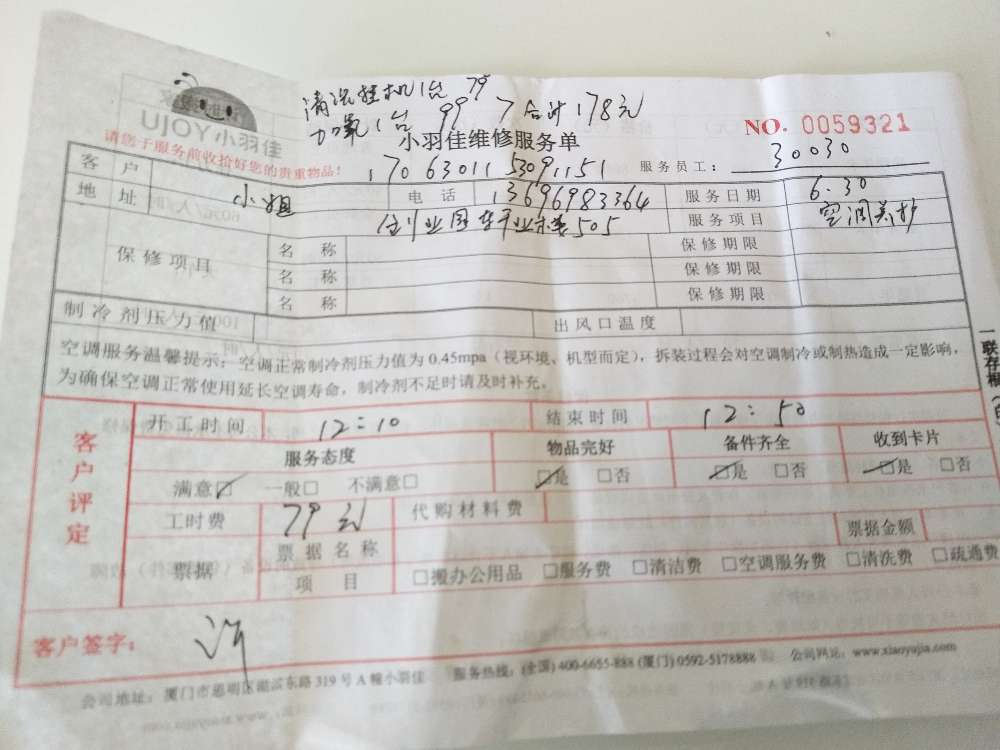 清洗挂机1台 79
加氧1台 99 7 合计178元
UJOY小羽佳
小羽佳维修服务单
NO. 0059321
请您于服务前收拾好您的贵重物品!
170630115309151
服务员工: 30030
客户 小姐 电话 13696983364 服务日期 6.30
地址 505 服务项目 空调养护
保修项目 名称 保修期限
名称 保修期限
名称 保修期限
制冷剂压力值 出风口温度
空调服务温馨提示:空调正常制冷剂压力值为0.45mpa(视环境、机型而定),拆装过程会对空调制冷或制热造成一定影响,
为确保空调正常使用延长空调寿命,制冷剂不足时请及时补充。
一联存根
客户评定
开工时间 12:10 结束时间 12:50
服务态度 物品完好 备件齐全 收到卡片
满意☑ 一般□ 不满意□ ☑是 □否 ☑是 □否 ☑是 □否
工时费 79元 代购材料费
票据 票据名称 票据金额
项目 □搬办公用品 □服务费 □清洁费 □空调服务费 □清洗费 □疏通费
客户签字: 许
公司地址:厦门市思明区湖滨东路319号A幢小羽佳 服务热线:(全国)400-6655-888 (厦门)0592-5178888 公司网址:www.xiaoyujia.com